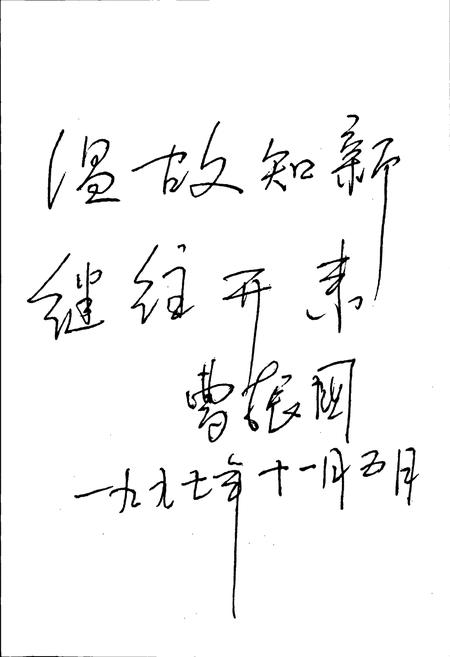 温故知新
继往开来
曹振国
一九九七年十一月五月